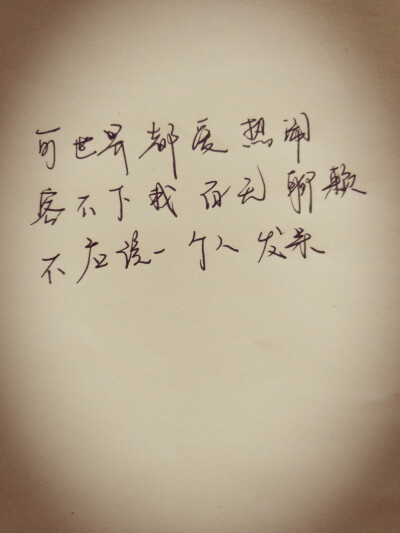 可世界都爱热闹
容不下我百无聊赖
不应该一个人发呆